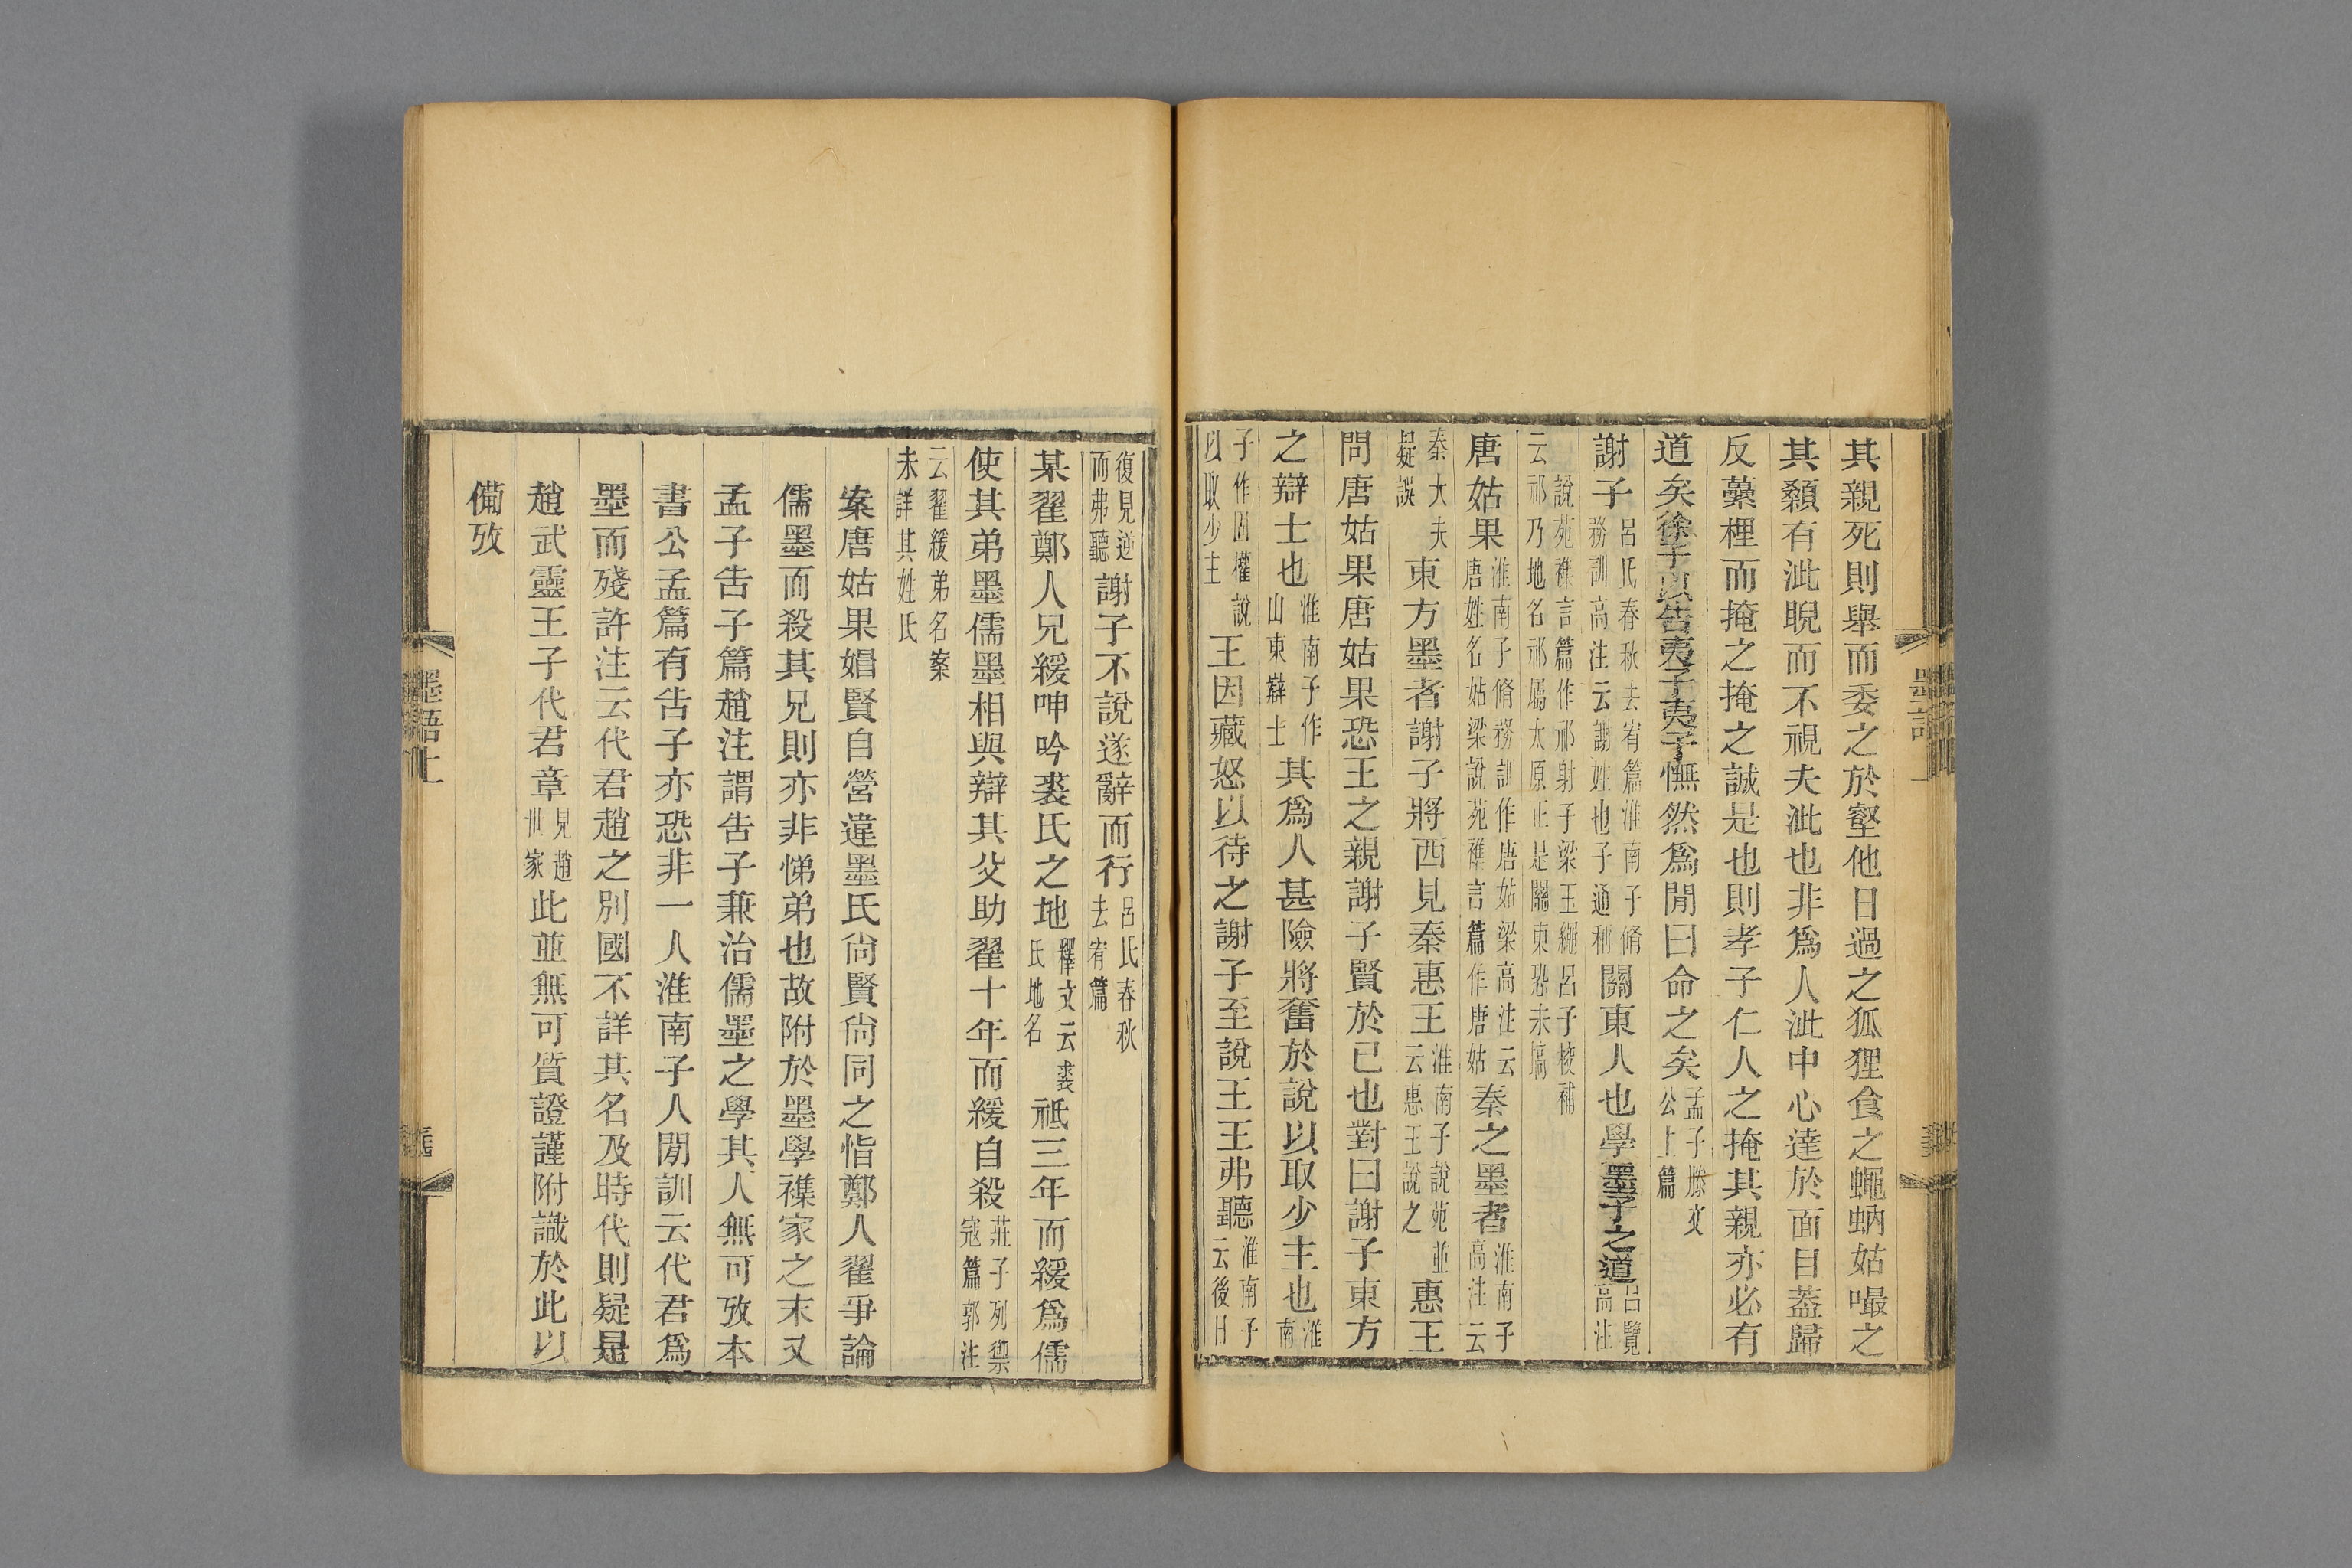 其親死則舉而委之於壑他日過之狐狸食之蠅蚋姑嘬之
其顙有泚睨而不視夫泚也非爲人泚中心達於面目葢歸
反虆梩而掩之掩之誠是也則孝子仁人之掩其親亦必有
道矣徐子以告夷子夷子憮然爲閒曰命之矣孟子滕文公上篇
謝子呂氏春秋去宥篇淮南子脩務訓高注云謝姓也子通稱關東人也學墨子之道呂覽高注
云說苑襍言篇作祁射子梁玉繩呂子校補祁乃地名祁屬太原正是關東恐未塙
唐姑果淮南子脩務訓作唐姑梁高注云唐姓名姑梁說苑襍言篇作唐姑秦之墨者淮南子高注云
秦大夫疑誤東方墨者謝子將西見秦惠王淮南子說苑並云惠王說之惠王
問唐姑果唐姑果恐王之親謝子賢於己也對曰謝子東方
之辯士也淮南子作山東辯士其爲人甚險將奮於說以取少主也淮南
子作固權說以取少主王因藏怒以待之謝子至說王王弗聽淮南子云後日
復見逆而弗聽謝子不說遂辭而行呂氏春秋去宥篇
某翟鄭人兄緩呻吟裘氏之地釋文云裘氏地名祗三年而緩爲儒
使其弟墨儒墨相與辯其父助翟十年而緩自殺莊子列禦寇篇郭注
云翟緩弟名案未詳其姓氏
案唐姑果媢賢自營違墨氏尙賢尙同之恉鄭人翟爭論
儒墨而殺其兄則亦非悌弟也故附於墨學襍家之末又
孟子告子篇趙注謂告子兼治儒墨之學其人無可攷本
書公孟篇有告子亦恐非一人淮南子人閒訓云代君爲
墨而殘許注云代君趙之別國不詳其名及時代則疑是
趙武靈王子代君章見趙世家此並無可質證謹附識於此以
備攷
墨語上